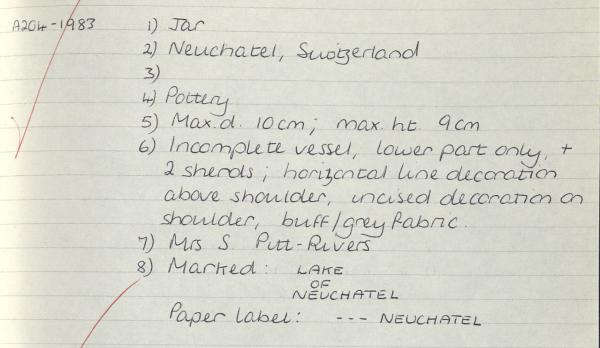 A204-1983 1) Jar
2) Neuchatel, Switzerland
3)
4) Pottery
5) Max.d. 10cm; max. ht. 9cm
6) Incomplete vessel, lower part only, +
2 sherds; horizontal line decoration
above shoulder, incised decoration on
shoulder, buff/grey fabric.
7) Mrs S Pitt-Rivers
8) Marked: LAKE
OF
NEUCHATEL
Paper label: --- NEUCHATEL